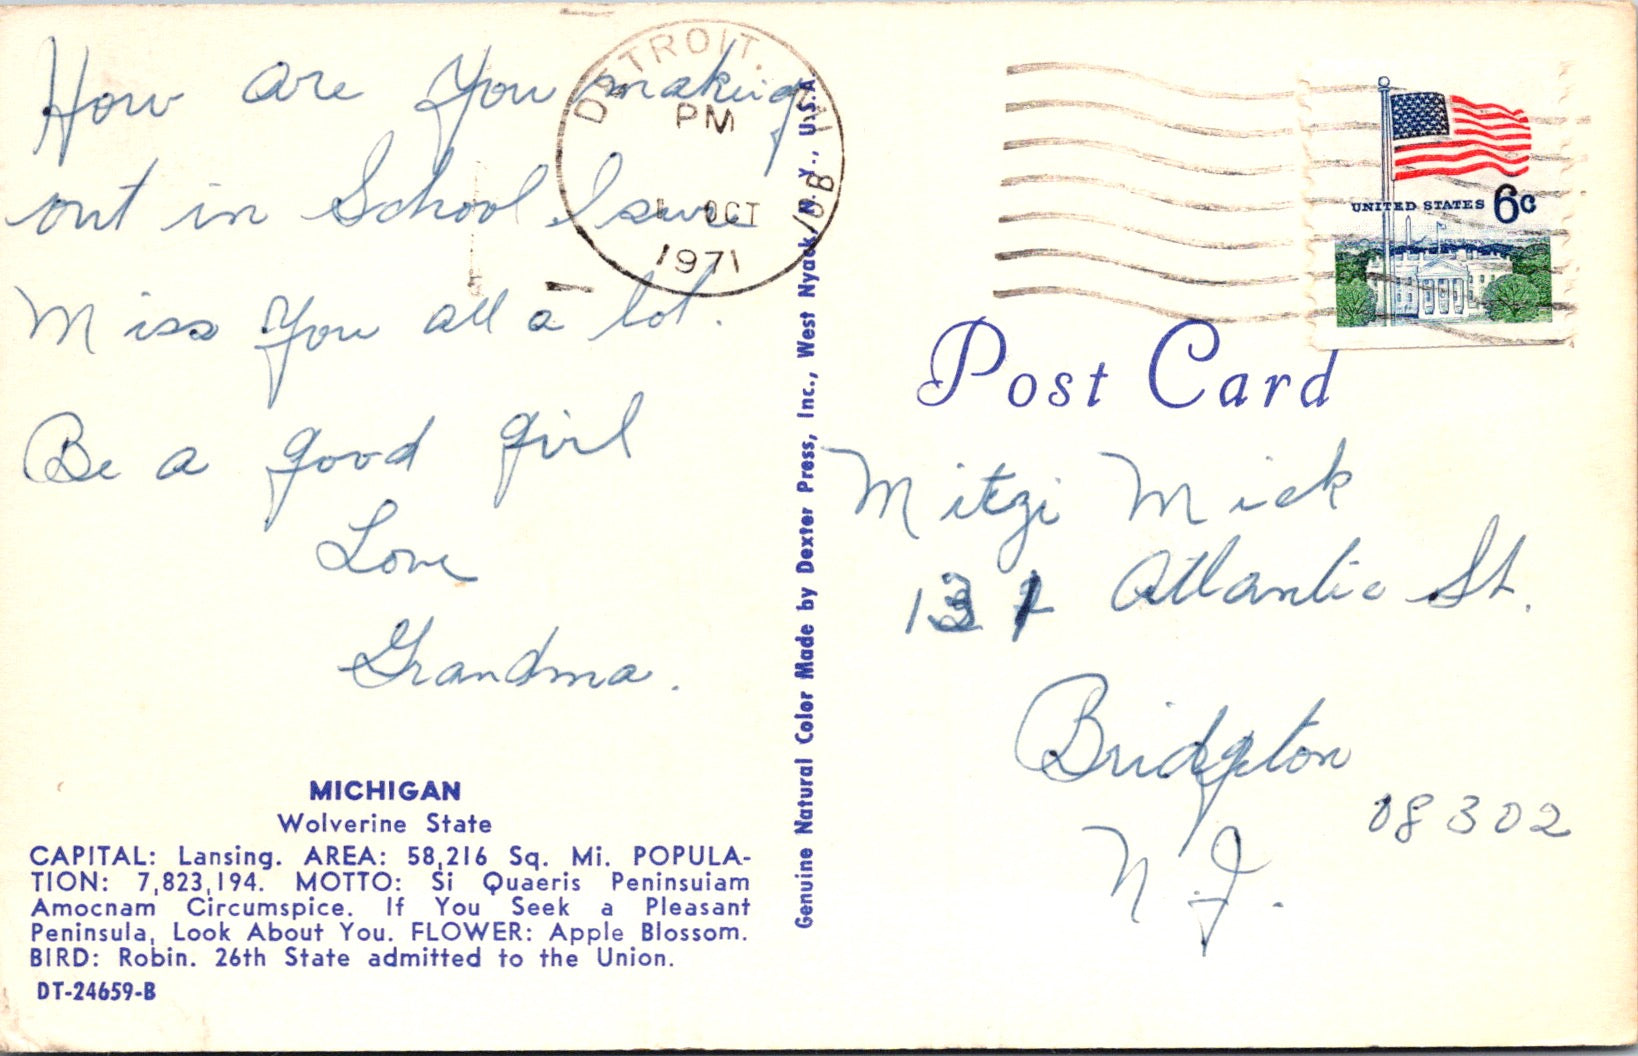 How are You making
out in School I sure
Miss You all a lot.
Be a good girl
Love
Grandma.
MICHIGAN
Wolverine State
CAPITAL: Lansing. AREA: 58,216 Sq. Mi. POPULA-
TION: 7,823,194. MOTTO: Si Quaeris Peninsuiam
Amocnam Circumspice. If You Seek a Pleasant
Peninsula, Look About You. FLOWER: Apple Blossom.
BIRD: Robin. 26th State admitted to the Union.
DT-24659-B
Genuine Natural Color Made by Dexter Press, Inc., West Nyack, N. Y., U.S.A.
DETROIT, MI
PM
OCT
1971
UNITED STATES 6c
Post Card
Mitzi Mick
13 Atlantic St.
Bridgeton
08302
N.J.